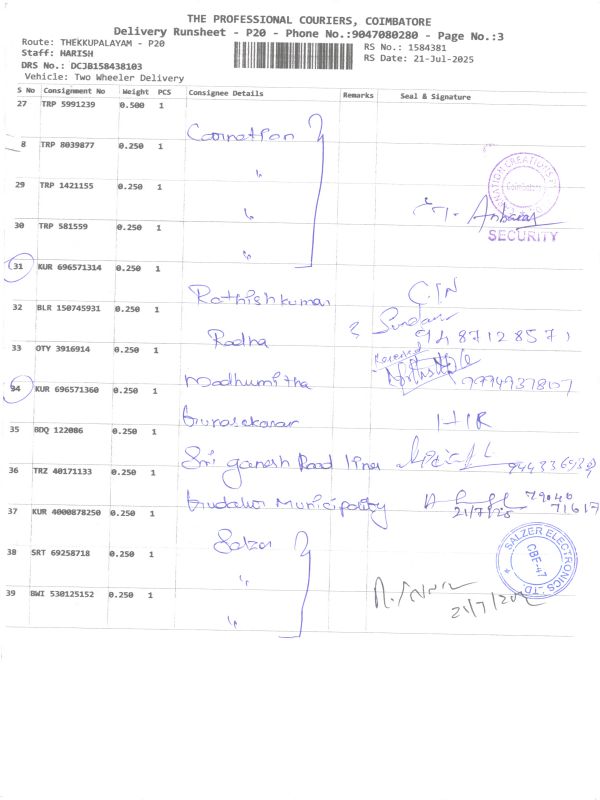 THE PROFESSIONAL COURIERS, COIMBATORE
Delivery Runsheet - P20 - Phone No.:9047080280 - Page No.:3
Route: THEKKUPALAYAM - P20
Staff: HARISH
DRS No.: DCJB158438103
Vehicle: Two Wheeler Delivery
RS No.: 1584381
RS Date: 21-Jul-2025
S No Consignment No Weight PCS Consignee Details Remarks Seal & Signature
27 TRP 5991239 0.500 1
8 TRP 8039877 0.250 1
29 TRP 1421155 0.250 1 "
30 TRP 581559 0.250 1 "
Anbaras
Coimbatore
SECURITY
31 KUR 696571314 0.250 1
Rathishkumar
32 BLR 150745931 0.250 1
Radha Sundar
9487128571
33 OTY 3916914 0.250 1
Received
Madhumitha
34 KUR 696571360 0.250 1
Gunasekaran
35 BDQ 122086 0.250 1
Sri ganesh Road lines
36 TRZ 40171133 0.250 1
Gudalur Municipality 79040
21/7/25 71617
37 KUR 4000878250 0.250 1
Salzer
38 SRT 69258718 0.250 1
"
SALZER ELECTRONICS LTD.
CBF-47
39 BWI 530125152 0.250 1
"